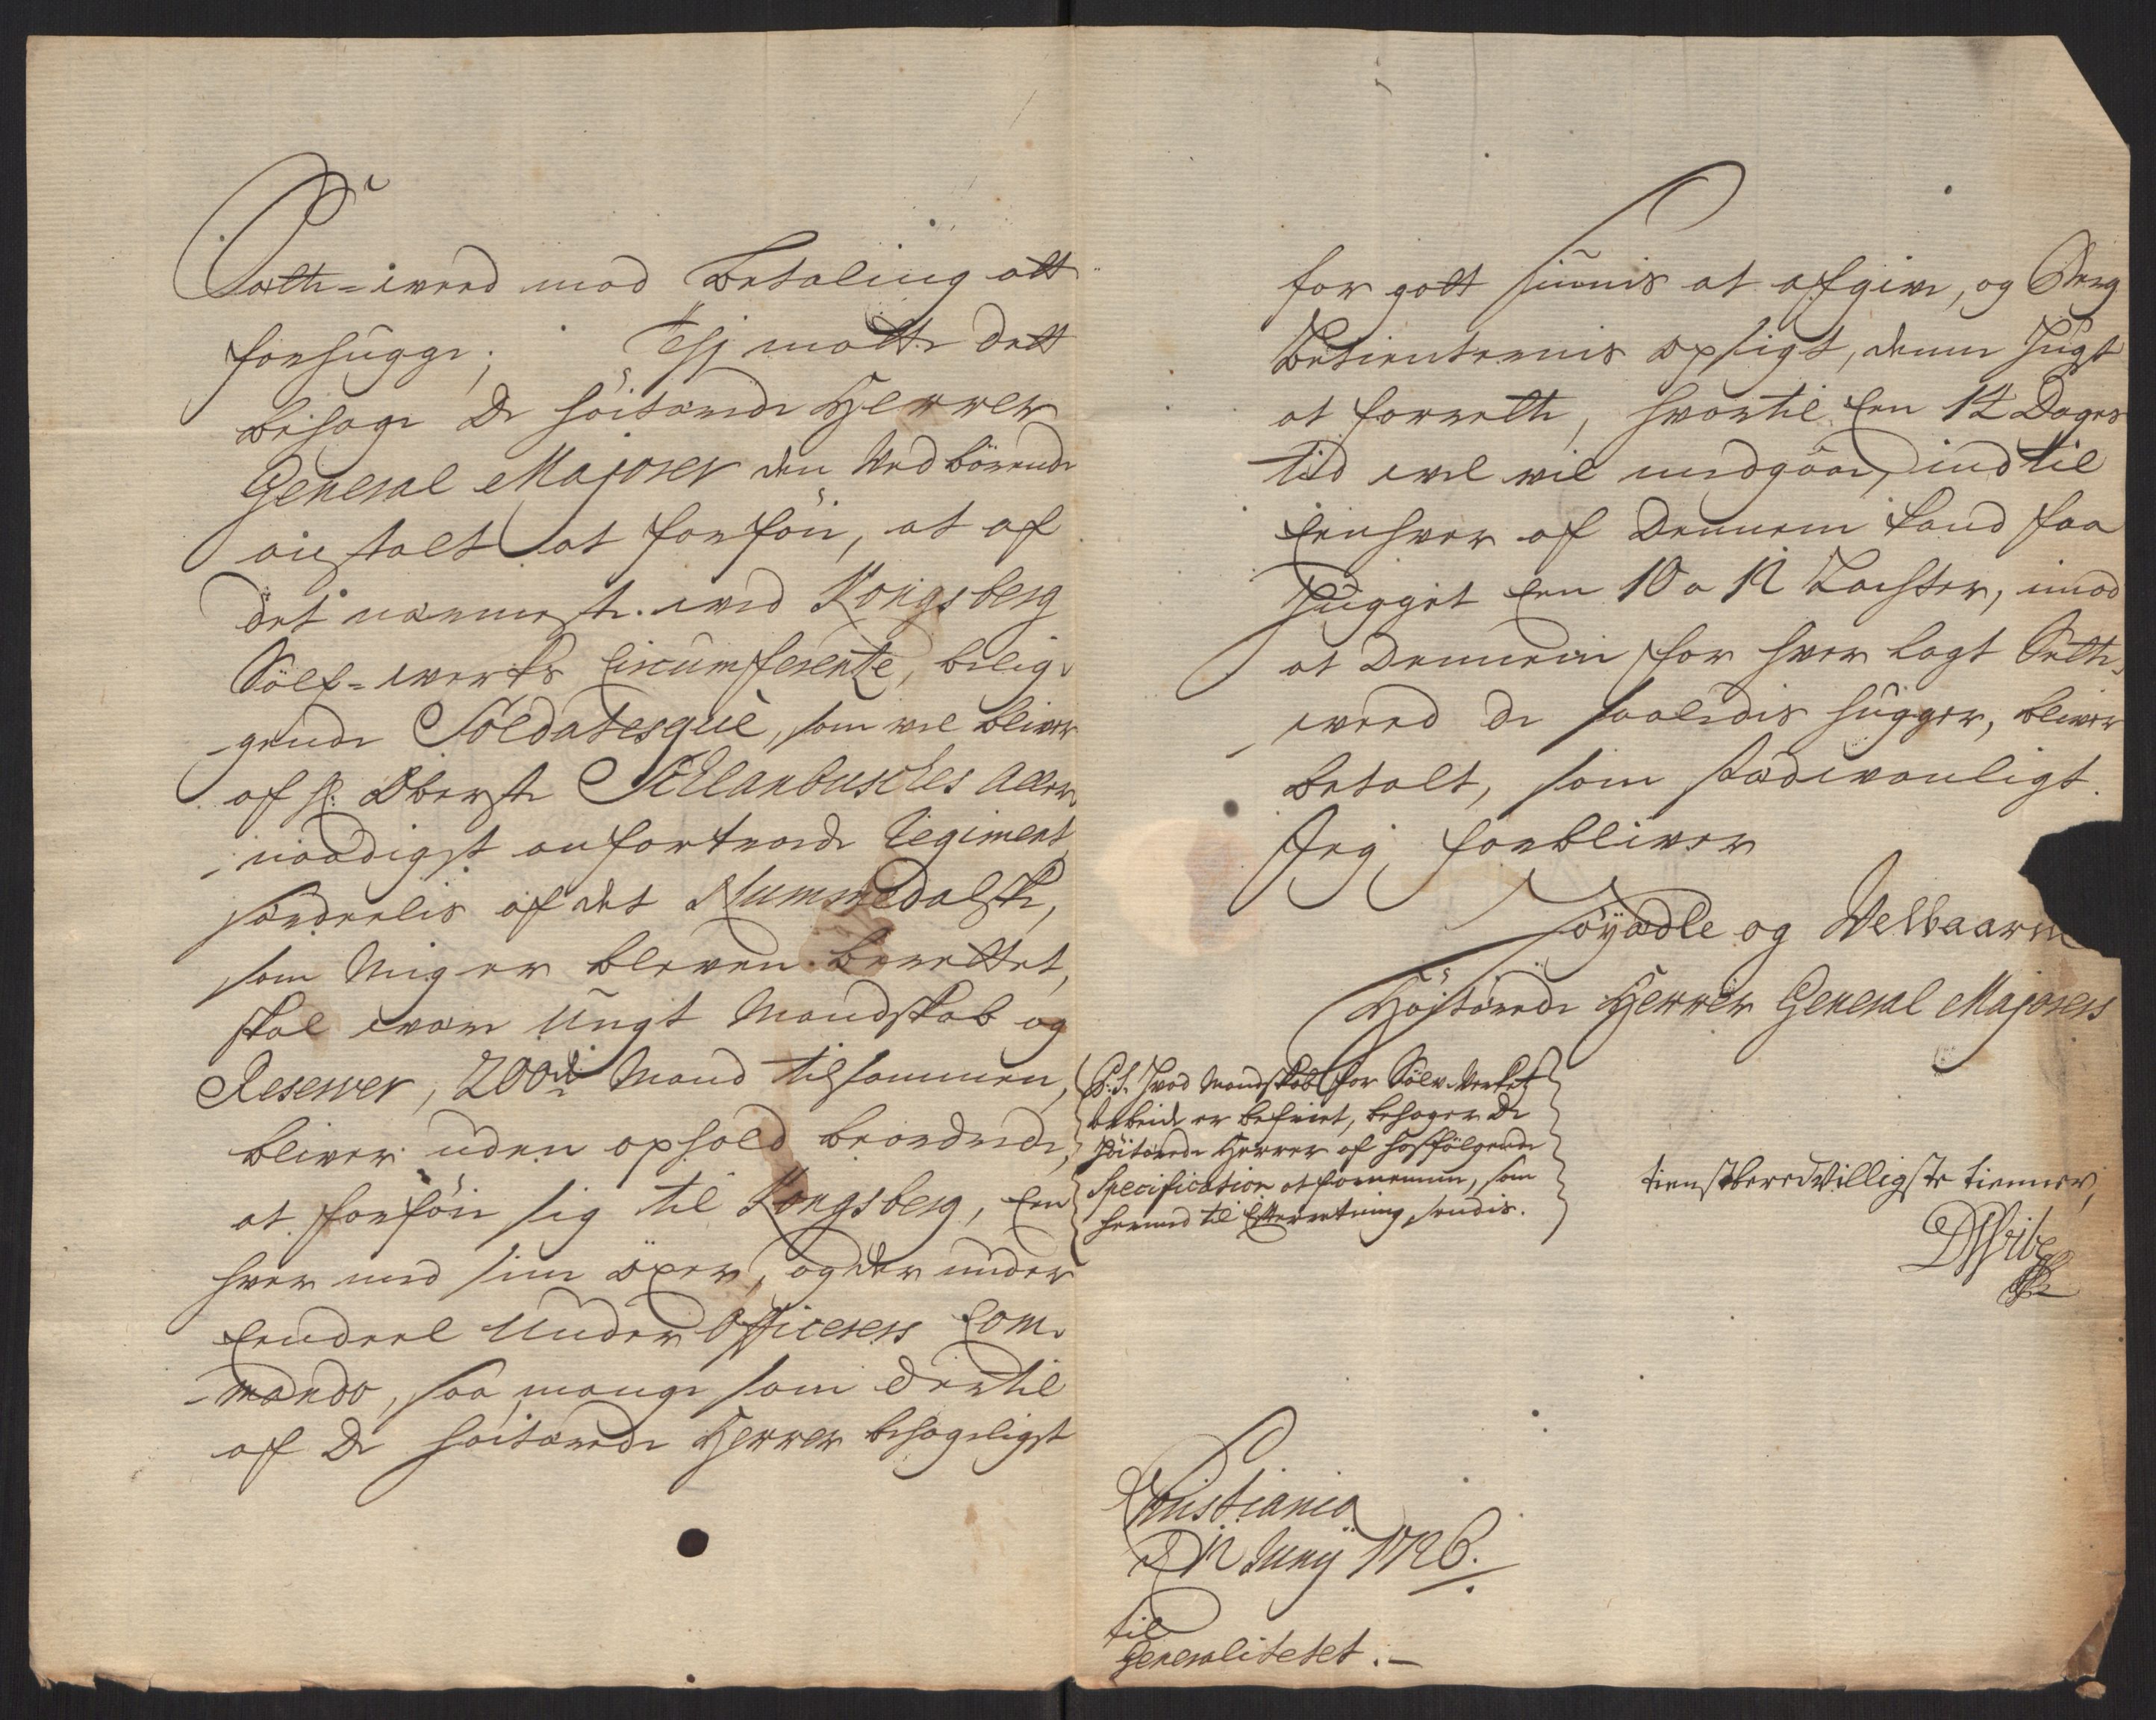 Sætte-weed mod Betaling att
forhugge; Thj motte dett
behage De höitærede Herrer
General Majorer den Vedbörende
anstalt at forföie, at af
det nærmeste wed Kongsberg
Sölf-werks Circumferentze, belig-
-gende Soldatesqve, som vel bliver
af H: Oberste Schlanbusches Aller-
naadigst anfortroede Regiment,
særdeelis af det Nummedalske,
som Mig er bleven berettet,
skal wære Ungt Mandskab og
Reserver, 200de Mand tilsammen,
bliver uden ophold beordrede,
at forföie sig til Kongsberg, Een
hver med sine öxer, og der under
Eendeel Under Officerers Com-
-mando, saa mange som dertil
af De höitærede Herrer behageligst
for gott siunis at afgive, og Berg
Betienternis opsigt, denne Hugst
at forrette, hvortil Een 14 Dages
tid wel vil medgaae, indtil
Eenhver af Dennem kand faa
Hugget Een 10 a 12 Lachter, imod
at Dennem for hver lagt Sette-
weed de saaledis hugger, bliver
betalt, som sædwanligt.
Jeg forbliver
Höyædle og Velbaarn
Höitærede Herrer General Majorers
P.S. Hvad Mandskab for Sölv-Verkets
Arbeide er befriet, behager De
Höitærede Herrer af hosfölgende
Specification at fornemme, som
hermed til Efterretning sendis.
tienstberedvilligste tienner,
DWibe
Christiania
d 12 Junij 1726.
til
Generalitetet.-